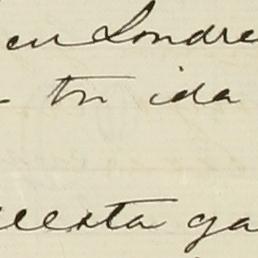 en Londre
tu ida
uesta ga